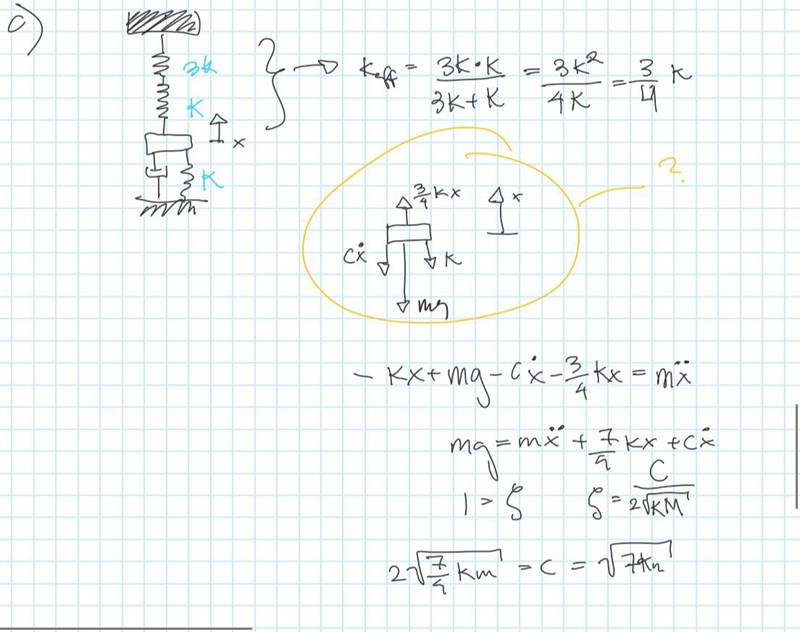 c)
3K
K
x
K
Keff = 3K·K / 3K+K = 3K² / 4K = 3/4 K
?
3/4 Kx
x
cẋ
K
mg
- Kx + mg - cẋ - 3/4 kx = mẍ
mg = mẍ + 7/4 Kx + cẋ
1 = ζ ζ = C / 2√KM
2√7/4 Km = C = √7Km